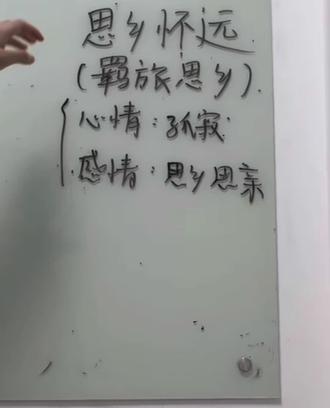 思乡怀远
(羁旅思乡).
心情:孤寂
感情:思乡思亲